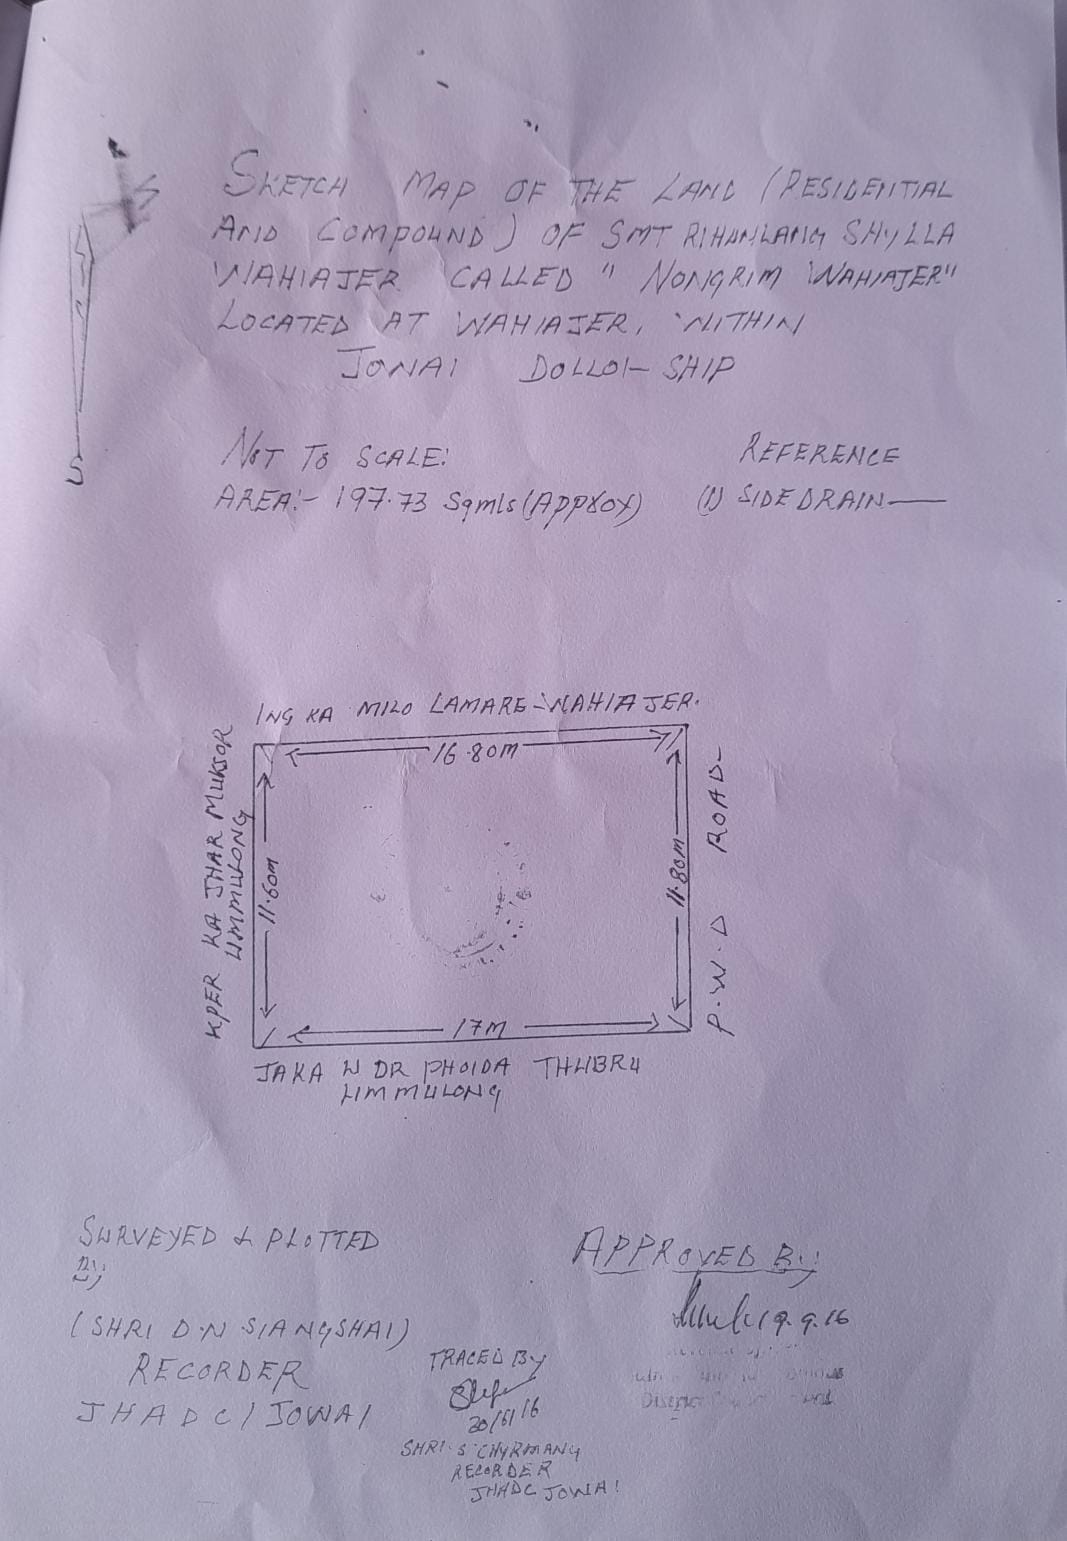 S
SKETCH MAP OF THE LAND (RESIDENTIAL
AND COMPOUND) OF SMT RIHUNLANG SHYLLA
WAHIAJER CALLED "NONGRIM WAHIAJER"
LOCATED AT WAHIAJER, WITHIN
JOWAI DOLLOI-SHIP
NOT TO SCALE:
REFERENCE
AREA:- 197.73 Sqmts (Approx)
(1) SIDE DRAIN
ING KA MILO LAMARE-WAHIAJER.
16.80m
KPER KA JHAR MUKSOR
UMMULONG
11.60m
11.80m
P.W.D ROAD-
17m
JAKA W DR PHOIDA THUBRU
UMMULONG
SURVEYED & PLOTTED
By
APPROVED By:
19.9.16
(SHRI D.N SIANGSHAI)
RECORDER
JHADC/JOWAI
TRACED By
SHRI S CHYRMANG
RECORDER
JHADC JOWAI
District